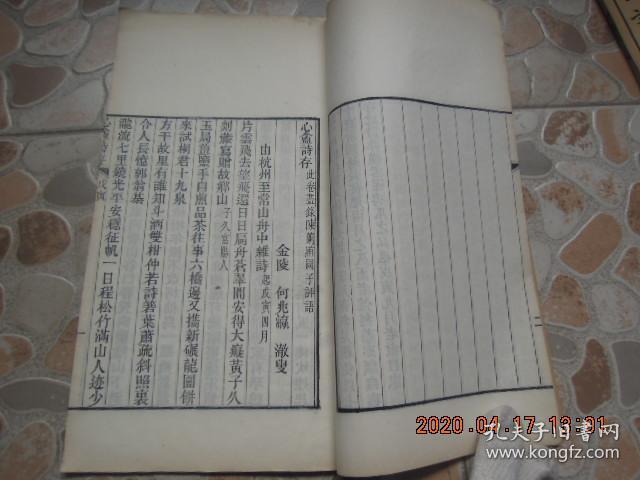 心盦詩存 此卷盡錄陳蘭甫國子評語
金陵 何兆瀛 澈叟
由杭州至常山舟中雜詩 起戊寅四月
片雲飛去望飛還日日扁舟蒼翠間安得大癡黃子久
刻藤寫贈故鄉山 子久富陽人
玉局前臨手自煎品茶往事六橋邊又攜新碾龍團餅
來試桐君十九泉
方干故里有誰知斗酒雙柑仲若詩著葉蕭疏斜照裏
令人長憶郭翁碁
瀧流七里鏡光平安穩征帆一日程松竹滿山人迹少
2020.04.17 13:01
孔夫子旧书网
kongfz.com